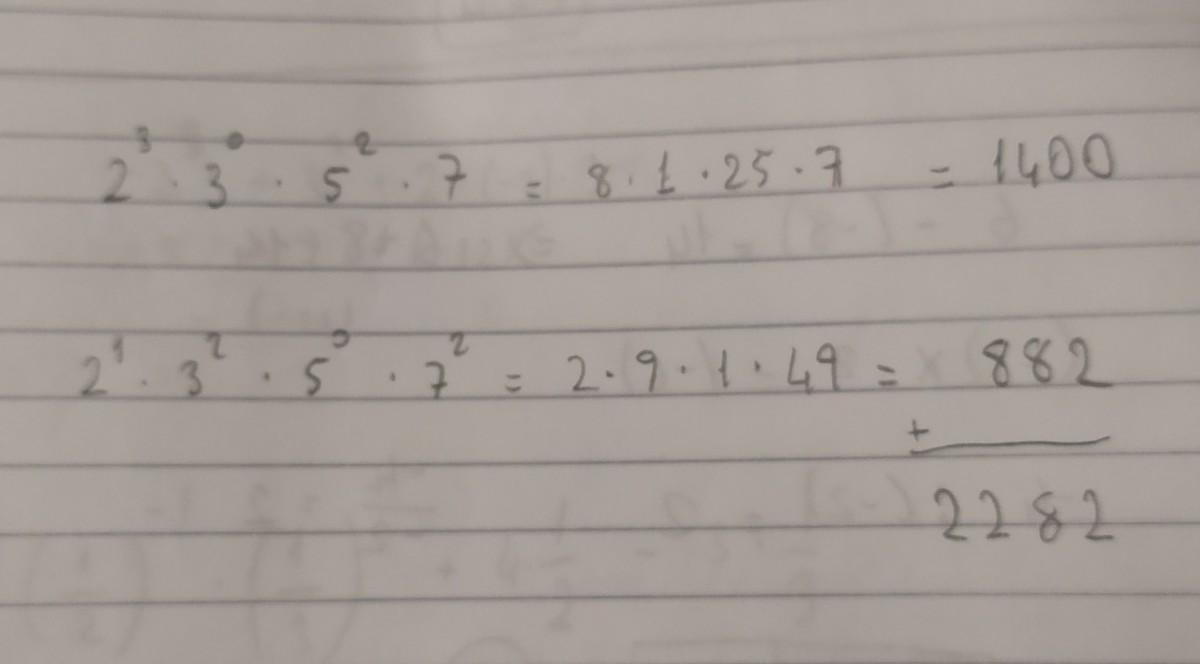 2³ · 3⁰ · 5² · 7 = 8 · 1 · 25 · 7 = 1400
2¹ · 3² · 5⁰ · 7² = 2 · 9 · 1 · 49 = 882
+
2282